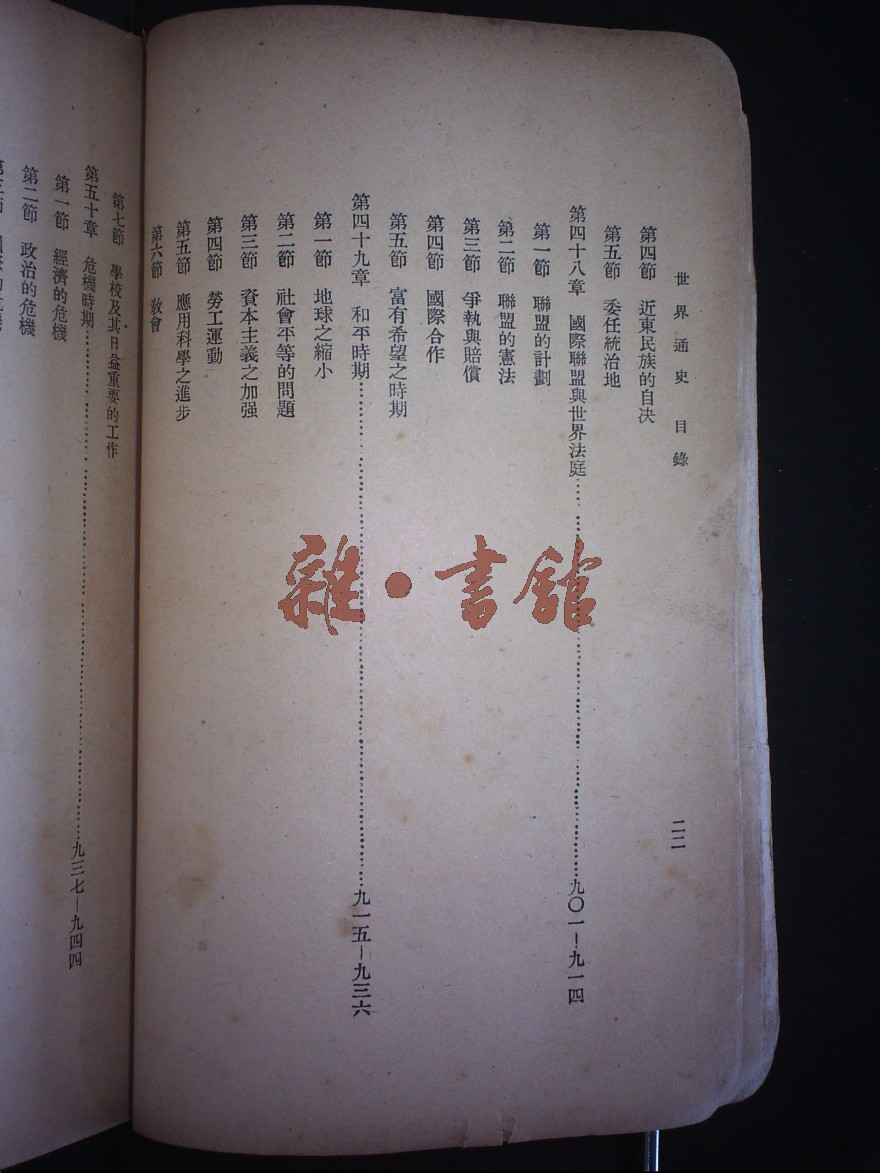 世界通史 目錄
二二
第四節 近東民族的自決
第五節 委任統治地
第四十八章 國際聯盟與世界法庭……九〇一—九一四
第一節 聯盟的計劃
第二節 聯盟的憲法
第三節 爭執與賠償
第四節 國際合作
第五節 富有希望之時期
第四十九章 和平時期……九一五—九三六
第一節 地球之縮小
第二節 社會平等的問題
第三節 資本主義之加强
第四節 勞工運動
第五節 應用科學之進步
第六節 敎會
第七節 學校及其日益重要的工作
第五十章 危機時期……九三七—九四四
第一節 經濟的危機
第二節 政治的危機
雜·書館